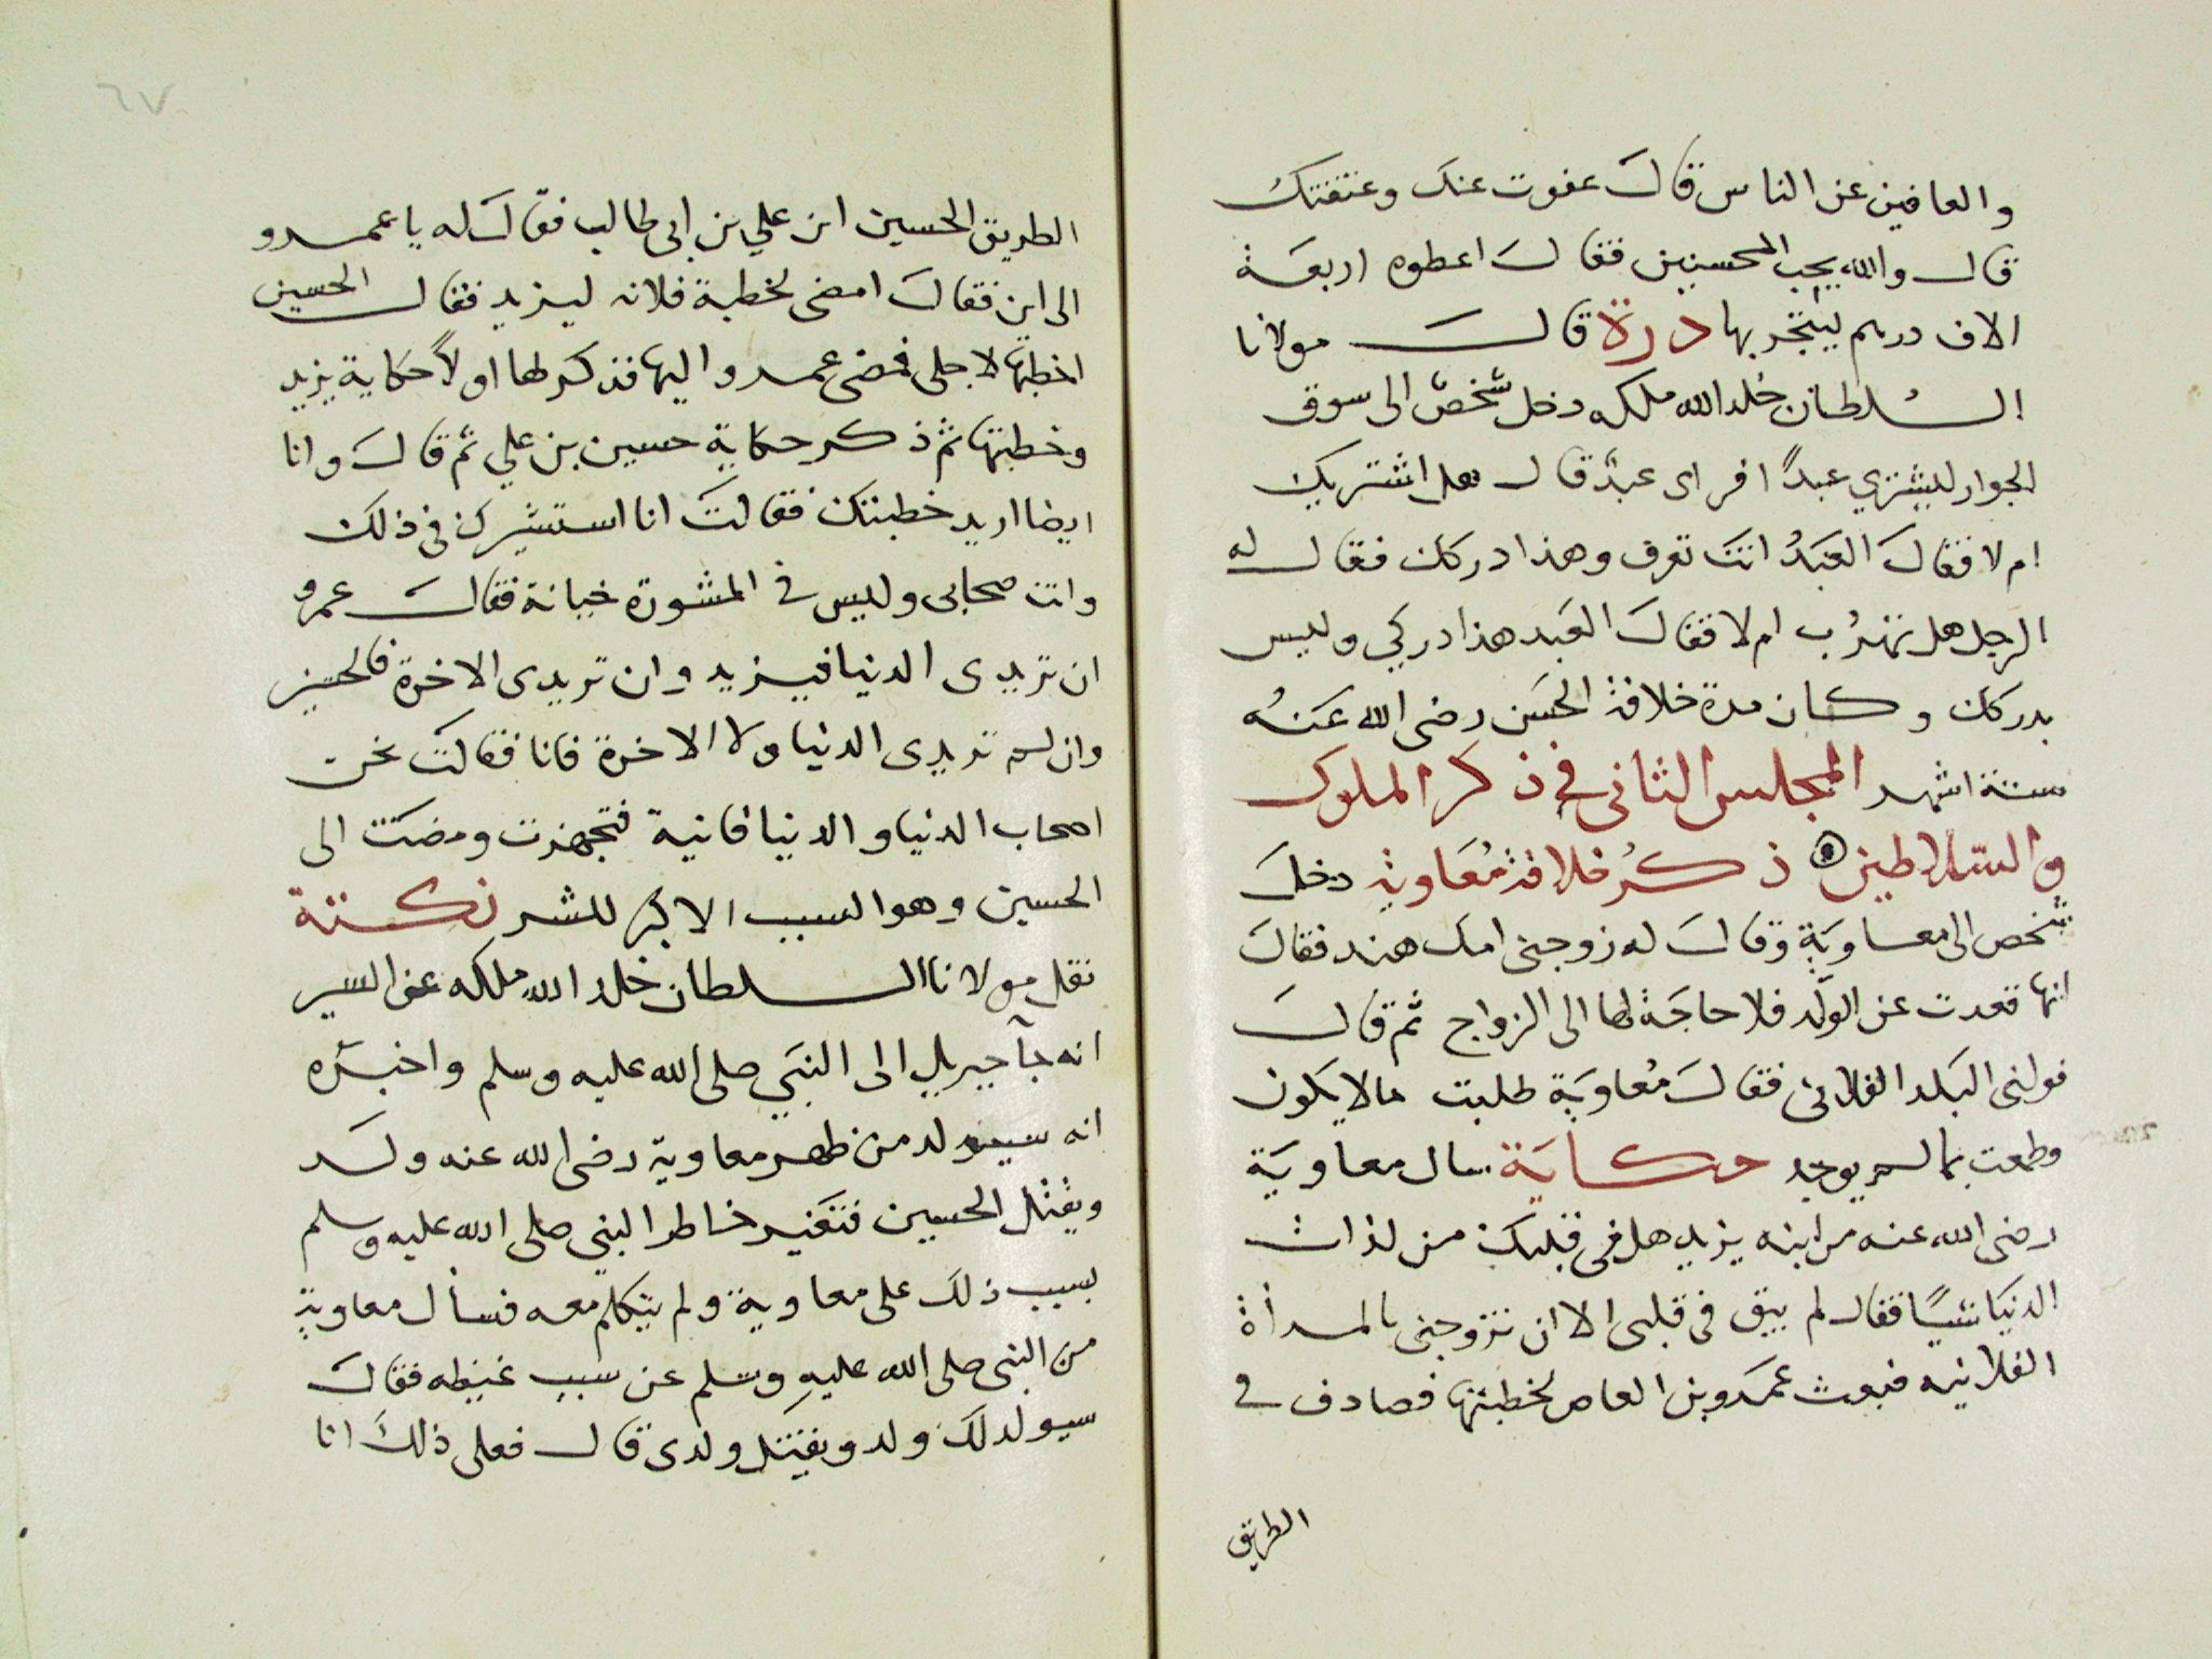 والعافين عن الناس قال عفوت عنك وعتقتك
قال والله يحب المحسنين فقال اعطوه اربعة
الاف درهم ليتجر بها درة قال مولانا
السلطان خلد الله ملكه دخل شخصٌ الى سوق
الجوار ليشتري عبدًا فراى عبدٌ قال هل اشتريك
ام لا فقال العبدُ انت تعرف وهذا دركك فقال له
الرجل هل تهرُب ام لا فقال العبد هذا دركي وليس
بدركك وكان مدة خلافة الحسن رضى الله عنهُ
ستة اشهر المجلس الثانى فى ذكر الملوك
والسلاطين ذكرُ خلافة مُعَاوية دخل
شخص الى معاوية وقال له زوجنى امك هند فقال
انها قعدت عن الولد فلا حاجة لها الى الزواج ثم قال
فولنى البلد الفلانى فقال مُعاوية طلبت مالا يكون
وطمعت بما لم يوجد حكاية سال معاوية
رضى الله عنه من ابنه يزيد هل فى قلبك من لذات
الدنيا شيئًا فقال لم يبق فى قلبى الا ان تزوجنى بالمرأة
الفلانيه فبعث عمرو بن العاص لخطبتها فصادف فى
الطريق
٦٧
الطريق الحسين ابن علي بن ابى طالب فقال له يا عمرو
الى اين فقال امضى لخطبة فلانه ليزيد فقال الحسين
اخطبها لاجلى فمضى عمرو اليها فذكر لها اولاً حكاية يزيد
وخطبتها ثم ذكر حكاية حسين بن علي ثم قال وانا
ايضا اريد خطبتك فقالت انا استشيرك فى ذلك
وانت صحابى وليس فى المشورة خيانة فقال عمرو
ان تريدى الدنيا فيزيد وان تريدى الاخرة فالحسين
وان لم تريدى الدنيا ولا الاخرة فانا فقالت نحن
اصحاب الدنيا والدنيا فانية فتجهزت ومضت الى
الحسين وهو السبب الاكبر للشر نكتة
نقل مولانا السلطان خلد الله ملكه عن السير
انه جآ جبريل الى النبي صلى الله عليه وسلم واخبره
انه سيولد من ظهر معاوية رضى الله عنه ولد
ويقتل الحسين فتغير خاطر النبي صلى الله عليه وسلم
بسبب ذلك على معاوية ولم يتكلم معه فسأل معاوية
من النبى صلى الله عليه وسلم عن سبب غيظه فقال
سيولد لك ولد ويقتل ولدى قال فعلى ذلك انا